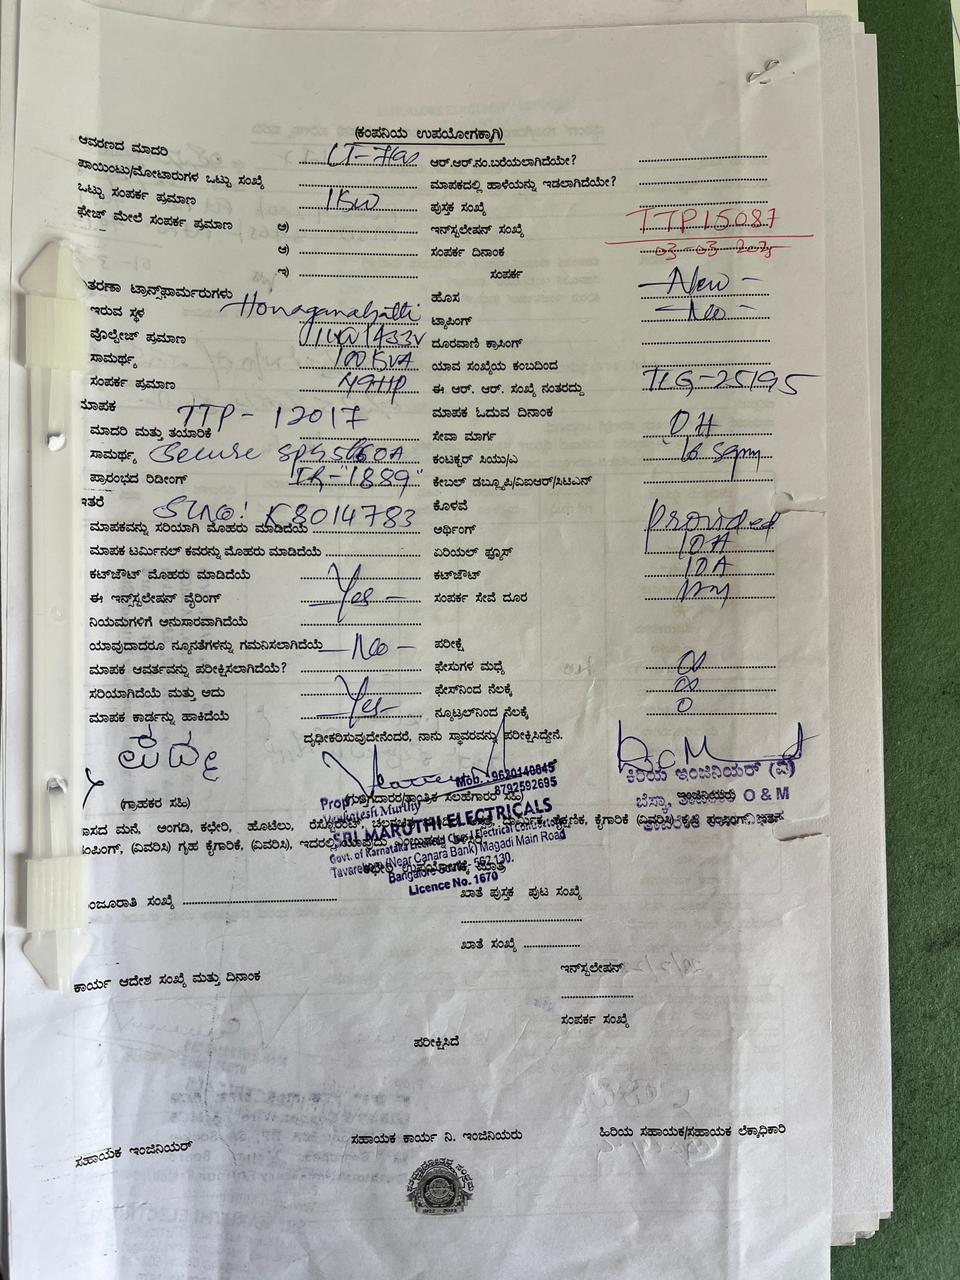 (ಕಂಪನಿಯ ಉಪಯೋಗಕ್ಕಾಗಿ)
ಆವರಣದ ಮಾದರಿ ಆರ್.ಆರ್.ನಂ.ಬರೆಯಲಾಗಿದೆಯೇ?
ಪಾಯಿಂಟು/ಮೋಟಾರುಗಳ ಒಟ್ಟು ಸಂಖ್ಯೆ ಮಾಪಕದಲ್ಲಿ ಹಾಳೆಯನ್ನು ಇಡಲಾಗಿದೆಯೇ?
ಒಟ್ಟು ಸಂಪರ್ಕ ಪ್ರಮಾಣ 1KW ಪುಸ್ತಕ ಸಂಖ್ಯೆ
ಫೇಜ್ ಮೇಲೆ ಸಂಪರ್ಕ ಪ್ರಮಾಣ ಅ) ಇನ್‌ಸ್ಟಲೇಷನ್ ಸಂಖ್ಯೆ TTP15087
ಆ) ಸಂಪರ್ಕ ದಿನಾಂಕ 03-03-2025
ಇ) ಸಂಪರ್ಕ
ತರಣಾ ಟ್ರಾನ್ಸ್‌ಫಾರ್ಮರುಗಳು ಹೊಸ -New-
ಇರುವ ಸ್ಥಳ Honaganahatti ಟ್ಯಾಪಿಂಗ್ -No-
ವೋಲ್ಟೇಜ್ ಪ್ರಮಾಣ ದೂರವಾಣಿ ಕ್ರಾಸಿಂಗ್
ಸಾಮರ್ಥ್ಯ 100KVA ಯಾವ ಸಂಖ್ಯೆಯ ಕಂಬದಿಂದ
ಸಂಪರ್ಕ ಪ್ರಮಾಣ 49HP ಈ ಆರ್. ಆರ್. ಸಂಖ್ಯೆ ನಂತರದ್ದು TLG-25195
ಮಾಪಕ TTP-12017 ಮಾಪಕ ಓದುವ ದಿನಾಂಕ
ಮಾದರಿ ಮತ್ತು ತಯಾರಿಕೆ ಸೇವಾ ಮಾರ್ಗ OH
ಸಾಮರ್ಥ್ಯ Secure ಕಂಟಕ್ಟರ್ ಸಿಯು/ಎ 16 sqmm
ಪ್ರಾರಂಭದ ರಿಡೀಂಗ್ IR-"1889" ಕೇಬಲ್ ಡಬ್ಲ್ಯೂಪಿ/ವಿಐಆರ್/ಸಿಟಿಎನ್
ಇತರೆ SLNo: K8014783 ಕೊಳವೆ
ಮಾಪಕವನ್ನು ಸರಿಯಾಗಿ ಮೊಹರು ಮಾಡಿದೆಯೆ ಅರ್ಥಿಂಗ್ Provided
ಮಾಪಕ ಟರ್ಮಿನಲ್ ಕವರನ್ನು ಮೊಹರು ಮಾಡಿದೆಯೆ ಏರಿಯಲ್ ಫ್ಯೂಸ್ 10A
ಕಟ್‌ಜೌಟ್ ಮೊಹರು ಮಾಡಿದೆಯೆ ಕಟ್‌ಜೌಟ್ 10A
ಈ ಇನ್‌ಸ್ಟಲೇಷನ್ ವೈರಿಂಗ್ Yes- ಸಂಪರ್ಕ ಸೇವೆ ದೂರ
ನಿಯಮಗಳಿಗೆ ಅನುಸಾರವಾಗಿದೆಯೆ
ಯಾವುದಾದರೂ ನ್ಯೂನತೆಗಳನ್ನು ಗಮನಿಸಲಾಗಿದೆಯೆ -No- ಪರೀಕ್ಷೆ
ಮಾಪಕ ಆವರ್ತವನ್ನು ಪರೀಕ್ಷಿಸಲಾಗಿದೆಯೆ? ಫೇಸುಗಳ ಮಧ್ಯೆ ∞
ಸರಿಯಾಗಿದೆಯೆ ಮತ್ತು ಅದು Yes- ಫೇಸ್‌ನಿಂದ ನೆಲಕ್ಕೆ ∞
ಮಾಪಕ ಕಾರ್ಡನ್ನು ಹಾಕಿದೆಯೆ ನ್ಯೂಟ್ರಲ್‌ನಿಂದ ನೆಲಕ್ಕೆ 0
ದೃಢೀಕರಿಸುವುದೇನೆಂದರೆ, ನಾನು ಸ್ಥಾವರವನ್ನು ಪರೀಕ್ಷಿಸಿದ್ದೇನೆ.
Mob.:9620140845
8792592695
ಕಿರಿಯ ಇಂಜಿನಿಯರ್ (ವಿ)
(ಗ್ರಾಹಕರ ಸಹಿ) (ಗುತ್ತಿಗದಾರರ/ತಾಂತ್ರಿಕ ಸಲಹೆಗಾರರ ಸಹಿ) ಇಂಜಿನಿಯರು
O & M
Venkatesh Murthy
SRI MARUTHI ELECTRICALS
Govt. of Karnataka Licensed Class I Electrical Contractor
Tavarekere (Near Canara Bank) Magadi Main Road
Bangalore South - 562 130.
Licence No. 1670
ಖಾತೆ ಪುಸ್ತಕ ಪುಟ ಸಂಖ್ಯೆ
ಂಜೂರಾತಿ ಸಂಖ್ಯೆ
ಖಾತೆ ಸಂಖ್ಯೆ
ಇನ್‌ಸ್ಟಲೇಷನ್
ಕಾರ್ಯ ಆದೇಶ ಸಂಖ್ಯೆ ಮತ್ತು ದಿನಾಂಕ
ಸಂಪರ್ಕ ಸಂಖ್ಯೆ
ಪರೀಕ್ಷಿಸಿದೆ
ಸಹಾಯಕ ಇಂಜಿನಿಯರ್ ಸಹಾಯಕ ಕಾರ್ಯ ನಿ. ಇಂಜಿನಿಯರು ಹಿರಿಯ ಸಹಾಯಕ/ಸಹಾಯಕ ಲೆಕ್ಕಾಧಿಕಾರಿ